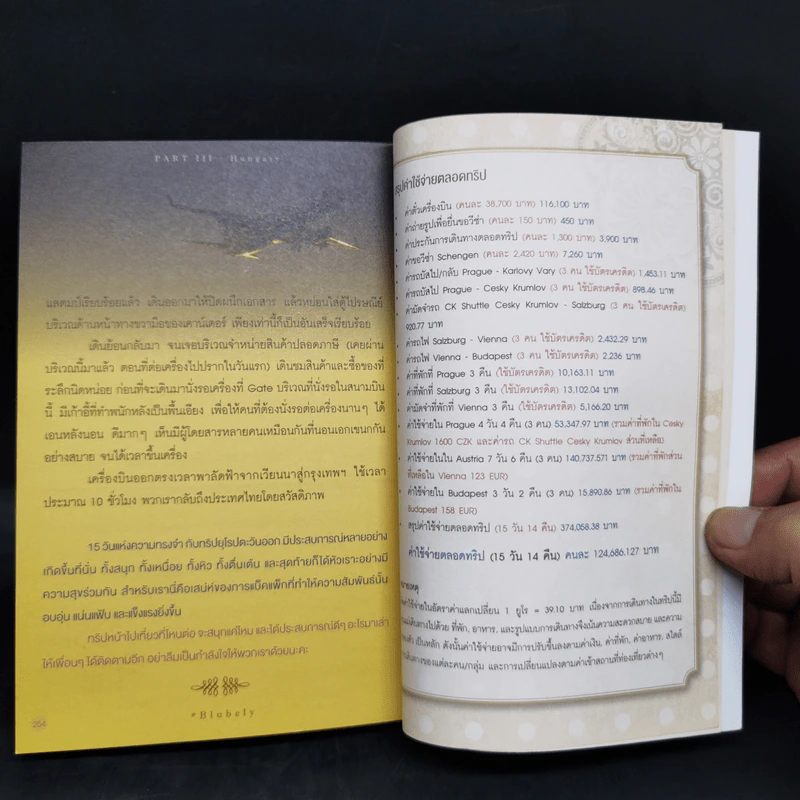 PART III Hungary
แสตมป์เรียบร้อยแล้ว เดินออกมาให้ปิดผนึกเอกสาร แล้วหย่อนใส่ตู้ไปรษณีย์
บริเวณด้านหน้าทางขวามือของเคาน์เตอร์ เพียงเท่านี้ก็เป็นอันเสร็จเรียบร้อย
เดินย้อนกลับมา จนเจอบริเวณจำหน่ายสินค้าปลอดภาษี (เคยผ่าน
บริเวณนี้มาแล้ว ตอนที่ต่อเครื่องไปปรากในวันแรก) เดินชมสินค้าและซื้อของที่
ระลึกนิดหน่อย ก่อนที่จะเดินมานั่งรอเครื่องที่ Gate บริเวณที่นั่งรอในสนามบิน
นี้ มีเก้าอี้ที่ทำพนักหลังเป็นพื้นเอียง เพื่อให้คนที่ต้องนั่งรอต่อเครื่องนานๆ ได้
เอนหลังนอน ดีมากๆ เห็นมีผู้โดยสารหลายคนเหมือนกันที่นอนเอกเขนกกัน
อย่างสบาย จนได้เวลาขึ้นเครื่อง
เครื่องบินออกตรงเวลาพาลัดฟ้าจากเวียนนาสู่กรุงเทพฯ ใช้เวลา
ประมาณ 10 ชั่วโมง พวกเรากลับถึงประเทศไทยโดยสวัสดิภาพ
15 วันแห่งความทรงจำ กับทริปยุโรปตะวันออก มีประสบการณ์หลายอย่าง
เกิดขึ้นที่นั่น ทั้งสนุก ทั้งเหนื่อย ทั้งหิว ทั้งตื่นเต้น และสุดท้ายก็ได้หัวเราะอย่างมี
ความสุขร่วมกัน สำหรับเรานี่คือเสน่ห์ของการแบ็คแพ็กที่ทำให้ความสัมพันธ์นั้น
อบอุ่น แน่นแฟ้น และแข็งแรงยิ่งขึ้น
ทริปหน้าไปเที่ยวที่ไหนต่อ จะสนุกแค่ไหน และได้ประสบการณ์ดีๆ อะไรมาเล่า
ให้เพื่อนๆ ได้ติดตามอีก อย่าลืมเป็นกำลังใจให้พวกเราด้วยนะคะ
#Blubely
254
สรุปค่าใช้จ่ายตลอดทริป
ค่าตั๋วเครื่องบิน (คนละ 38,700 บาท) 116,100 บาท
ค่าถ่ายรูปเพื่อยื่นขอวีซ่า (คนละ 150 บาท) 450 บาท
ค่าประกันการเดินทางตลอดทริป (คนละ 1,300 บาท) 3,900 บาท
ค่าขอวีซ่า Schengen (คนละ 2,420 บาท) 7,260 บาท
ค่ารถบัสไป/กลับ Prague - Karlovy Vary (3 คน ใช้บัตรเครดิต) 1,453.11 บาท
ค่ารถบัสไป Prague - Cesky Krumlov (3 คน ใช้บัตรเครดิต) 898.46 บาท
ค่ามัดจำรถ CK Shuttle Cesky Krumlov - Salzburg (3 คน ใช้บัตรเครดิต)
920.77 บาท
ค่ารถไฟ Salzburg - Vienna (3 คน ใช้บัตรเครดิต) 2,432.29 บาท
ค่ารถไฟ Vienna - Budapest (3 คน ใช้บัตรเครดิต) 2,236 บาท
ค่าที่พักที่ Prague 3 คืน (ใช้บัตรเครดิต) 10,163.11 บาท
ค่าที่พักที่ Salzburg 3 คืน (ใช้บัตรเครดิต) 13,102.04 บาท
ค่ามัดจำที่พักที่ Vienna 3 คืน (ใช้บัตรเครดิต) 5,166.20 บาท
ค่าใช้จ่ายใน Prague 4 วัน 4 คืน (3 คน) 53,347.97 บาท (รวมค่าที่พักใน Cesky
Krumlov 1600 CZK และค่ารถ CK Shuttle Cesky Krumlov ส่วนที่เหลือ)
ค่าใช้จ่ายในใน Austria 7 วัน 6 คืน (3 คน) 140,737.571 บาท (รวมค่าที่พักส่วน
ที่เหลือใน Vienna 123 EUR)
ค่าใช้จ่ายใน Budapest 3 วัน 2 คืน (3 คน) 15,890.86 บาท (รวมค่าที่พักใน
Budapest 158 EUR)
สรุปค่าใช้จ่ายตลอดทริป (15 วัน 14 คืน) 374,058.38 บาท
ค่าใช้จ่ายตลอดทริป (15 วัน 14 คืน) คนละ 124,686.127 บาท
หมายเหตุ
ค่าใช้จ่ายในอัตราค่าแลกเปลี่ยน 1 ยูโร = 39.10 บาท เนื่องจากการเดินทางในทริปนี้มี
เดินทางไปด้วย ที่พัก, อาหาร, และรูปแบบการเดินทางจึงเน้นความสะดวกสบาย และความ
เป็นหลัก ดังนั้นค่าใช้จ่ายอาจมีการปรับขึ้นลงตามค่าเงิน, ค่าที่พัก, ค่าอาหาร, สไตล์
เดินทางของแต่ละคน/กลุ่ม และการเปลี่ยนแปลงตามค่าเข้าสถานที่ท่องเที่ยวต่างๆ